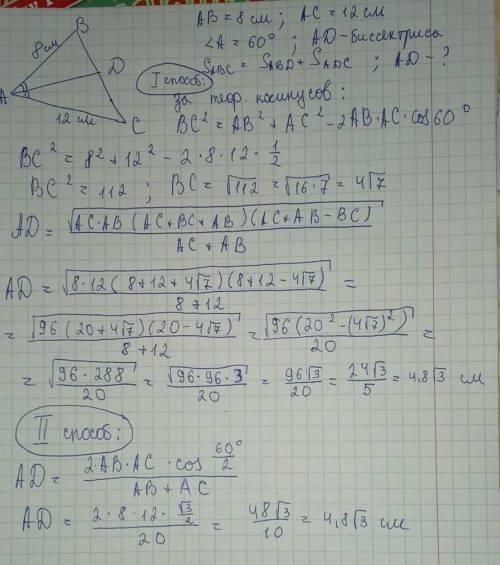 AB = 8 см ; AC = 12 см
∠A = 60° ; AD - биссектриса
S_ABC = S_ABD + S_ADC ; AD - ?
B
8 см
D
A
12 см
C
I способ:
за теор. косинусов :
BC² = AB² + AC² - 2AB·AC·cos 60°
BC² = 8² + 12² - 2·8·12·1/2
BC² = 112 ; BC = √112 = √16·7 = 4√7
AD = √(AC·AB (AC+BC+AB)(AC+AB-BC)) / (AC+AB)
AD = √(8·12(8+12+4√7)(8+12-4√7)) / (8+12) =
= √(96(20+4√7)(20-4√7)) / (8+12) = √(96(20²-(4√7)²)) / 20 =
= √(96·288) / 20 = √(96·96·3) / 20 = 96√3 / 20 = 24√3 / 5 = 4,8√3 см
II способ:
AD = (2·AB·AC·cos 60°/2) / (AB + AC)
AD = (2·8·12·√3/2) / 20 = 48√3 / 10 = 4,8√3 см